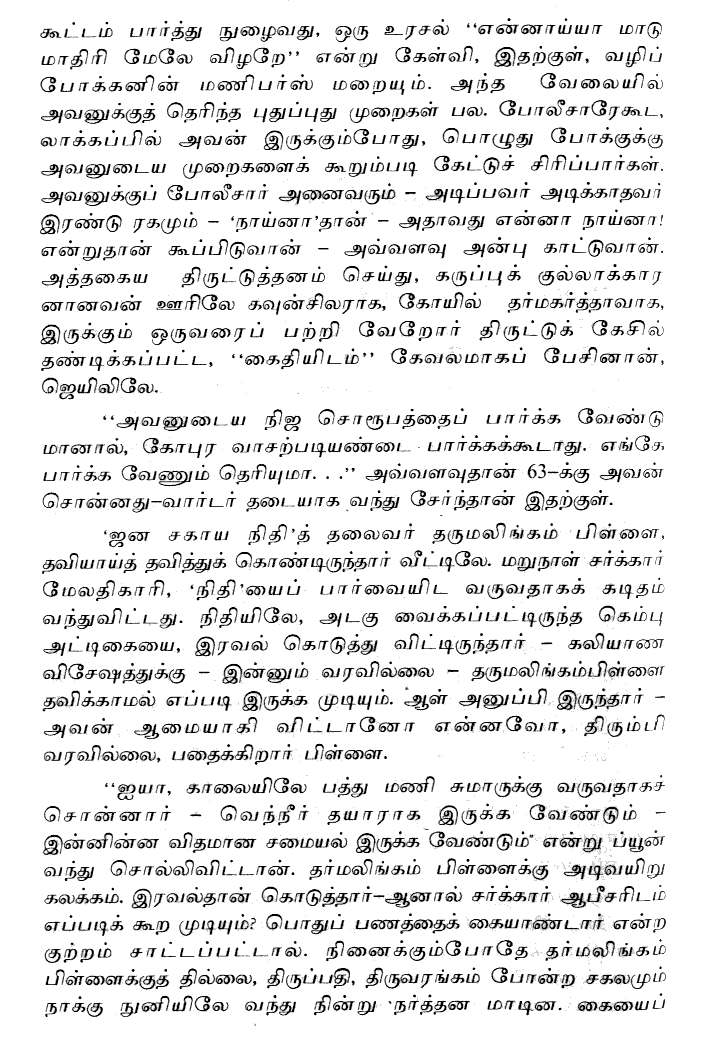 கூட்டம் பார்த்து நுழைவது, ஒரு உரசல் ‘‘என்னாய்யா மாடு
மாதிரி மேலே விழறே’’ என்று கேள்வி, இதற்குள், வழிப்
போக்கனின் மணிபர்ஸ் மறையும். அந்த வேலையில்
அவனுக்குத் தெரிந்த புதுப்புது முறைகள் பல. போலீசாரேகூட,
லாக்கப்பில் அவன் இருக்கும்போது, பொழுது போக்குக்கு
அவனுடைய முறைகளைக் கூறும்படி கேட்டுச் சிரிப்பார்கள்.
அவனுக்குப் போலீசார் அனைவரும் – அடிப்பவர் அடிக்காதவர்
இரண்டு ரகமும் – ‘நாய்னா’தான் – அதாவது என்னா நாய்னா!
என்றுதான் கூப்பிடுவான் – அவ்வளவு அன்பு காட்டுவான்.
அத்தகைய திருட்டுத்தனம் செய்து, கருப்புக் குல்லாக்கார
னானவன் ஊரிலே கவுன்சிலராக, கோயில் தர்மகர்த்தாவாக,
இருக்கும் ஒருவரைப் பற்றி வேறோர் திருட்டுக் கேசில்
தண்டிக்கப்பட்ட, ‘‘கைதியிடம்’’ கேவலமாகப் பேசினான்,
ஜெயிலிலே.
‘‘அவனுடைய நிஜ சொரூபத்தைப் பார்க்க வேண்டு
மானால், கோபுர வாசற்படியண்டை பார்க்கக்கூடாது. எங்கே
பார்க்க வேணும் தெரியுமா. . .’’ அவ்வளவுதான் 63–க்கு அவன்
சொன்னது–வார்டர் தடையாக வந்து சேர்ந்தான் இதற்குள்.
‘ஜன சகாய நிதி’த் தலைவர் தருமலிங்கம் பிள்ளை,
தவியாய்த் தவித்துக் கொண்டிருந்தார் வீட்டிலே. மறுநாள் சர்க்கார்
மேலதிகாரி, ‘நிதி’யைப் பார்வையிட வருவதாகக் கடிதம்
வந்துவிட்டது. நிதியிலே, அடகு வைக்கப்பட்டிருந்த கெம்பு
அட்டிகையை, இரவல் கொடுத்து விட்டிருந்தார் – கலியாண
விசேஷத்துக்கு – இன்னும் வரவில்லை – தருமலிங்கம்பிள்ளை
தவிக்காமல் எப்படி இருக்க முடியும். ஆள் அனுப்பி இருந்தார் –
அவன் ஆமையாகி விட்டானோ என்னவோ, திரும்பி
வரவில்லை, பதைக்கிறார் பிள்ளை.
‘‘ஐயா, காலையிலே பத்து மணி சுமாருக்கு வருவதாகச்
சொன்னார் – வெந்நீர் தயாராக இருக்க வேண்டும் –
இன்னின்ன விதமான சமையல் இருக்க வேண்டும்’ என்று ப்யூன்
வந்து சொல்லிவிட்டான். தர்மலிங்கம் பிள்ளைக்கு அடிவயிறு
கலக்கம். இரவல்தான் கொடுத்தார்–ஆனால் சர்க்கார் ஆபீசரிடம்
எப்படிக் கூற முடியும்? பொதுப் பணத்தைக் கையாண்டார் என்ற
குற்றம் சாட்டப்பட்டால். நினைக்கும்போதே தர்மலிங்கம்
பிள்ளைக்குத் தில்லை, திருப்பதி, திருவரங்கம் போன்ற சகலமும்
நாக்கு நுனியிலே வந்து நின்று நர்த்தன மாடின. கையைப்